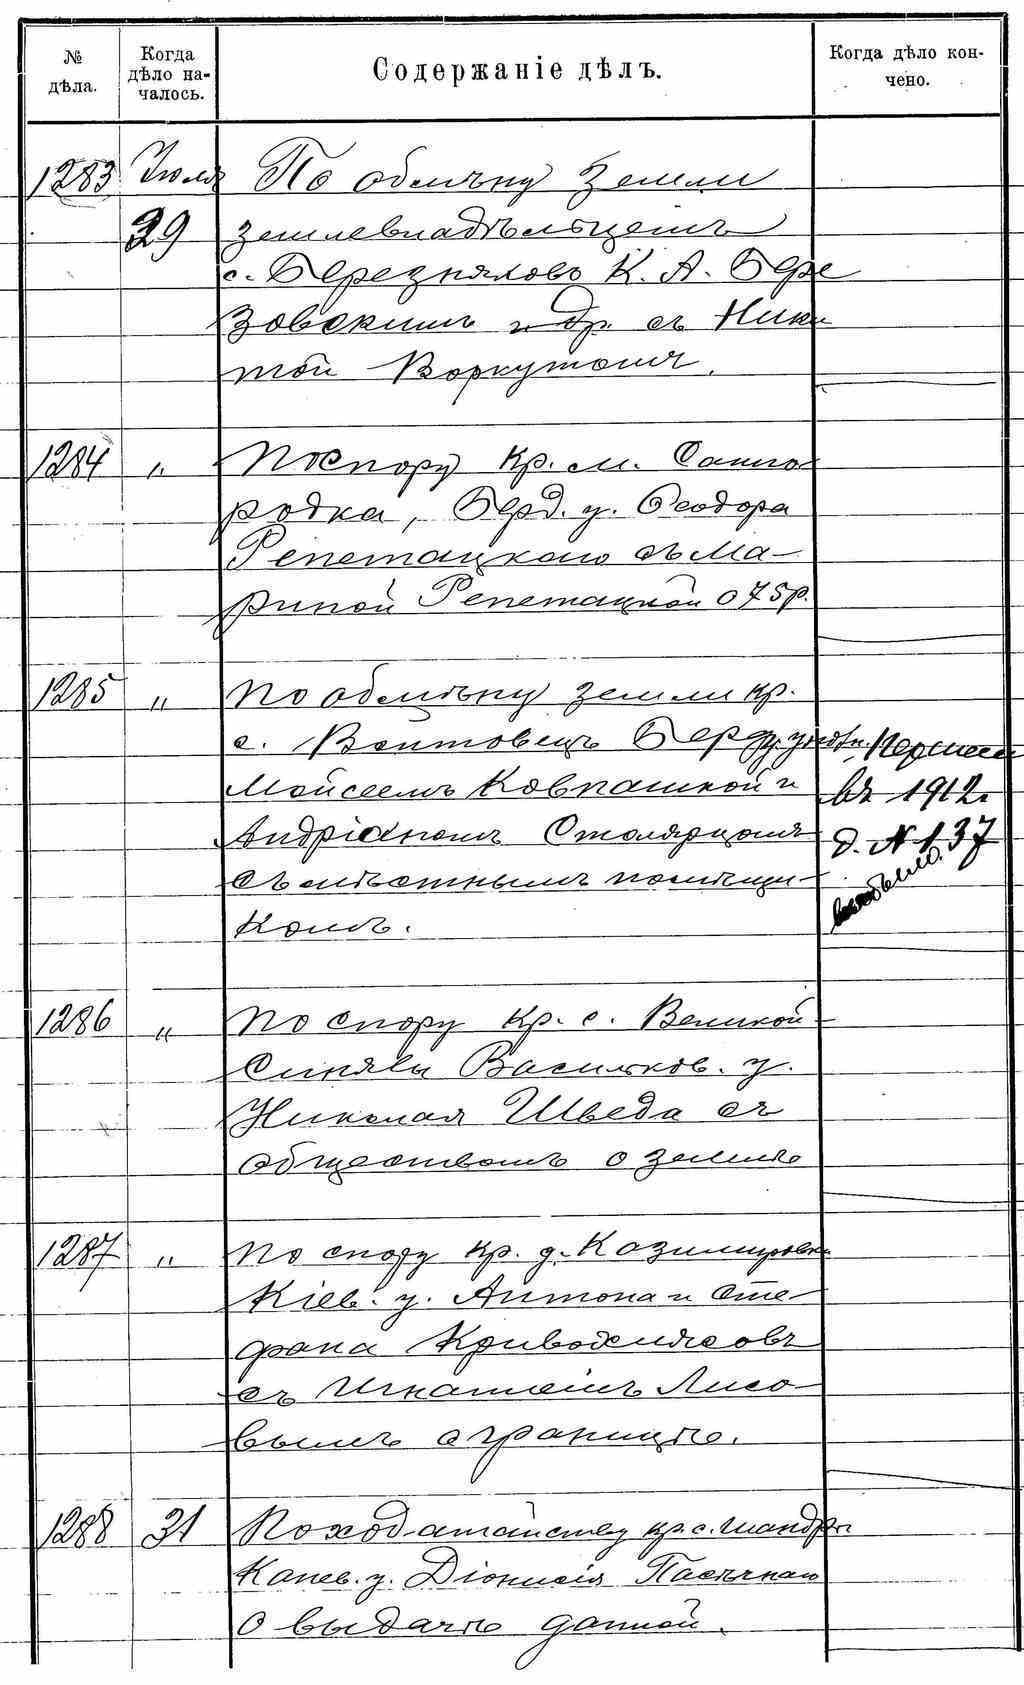 № дѣла.
Когда дѣло началось.
Содержаніе дѣлъ.
Когда дѣло кончено.
1283 Іюля По обмѣну земли
29 землевладѣльцемъ
с. Березняково К. А. Бере
зовскимъ и др. съ Ники
той Воркутомъ.
1284 " По спору кр. м. Самго
родка, Берд. у. Феодора
Репетацкаго съ Ма-
риной Репетацкой о 75 р.
1285 " По обмѣну земли кр.
с. Войтовецъ Берд.
Мойсеемъ Ковпашкой и
Андріаномъ Столярцомъ
съ мѣстнымъ помѣщи-
комъ.
въ 1912
д. № 137
1286 " По спору кр. с. Великой-
Синявы Васильков. у.
Николая Шведа съ
обществомъ о землѣ
1287 " По спору кр. д. Казимировки
Кіев. у. Антона и Сте-
фана Кривохижовъ
съ Игнатіемъ Лисо-
вымъ о границѣ.
1288 31 По ходатайству кр. с. Шандры
Канев. у. Діонисія Пасѣчнаго
о выдачѣ данной.